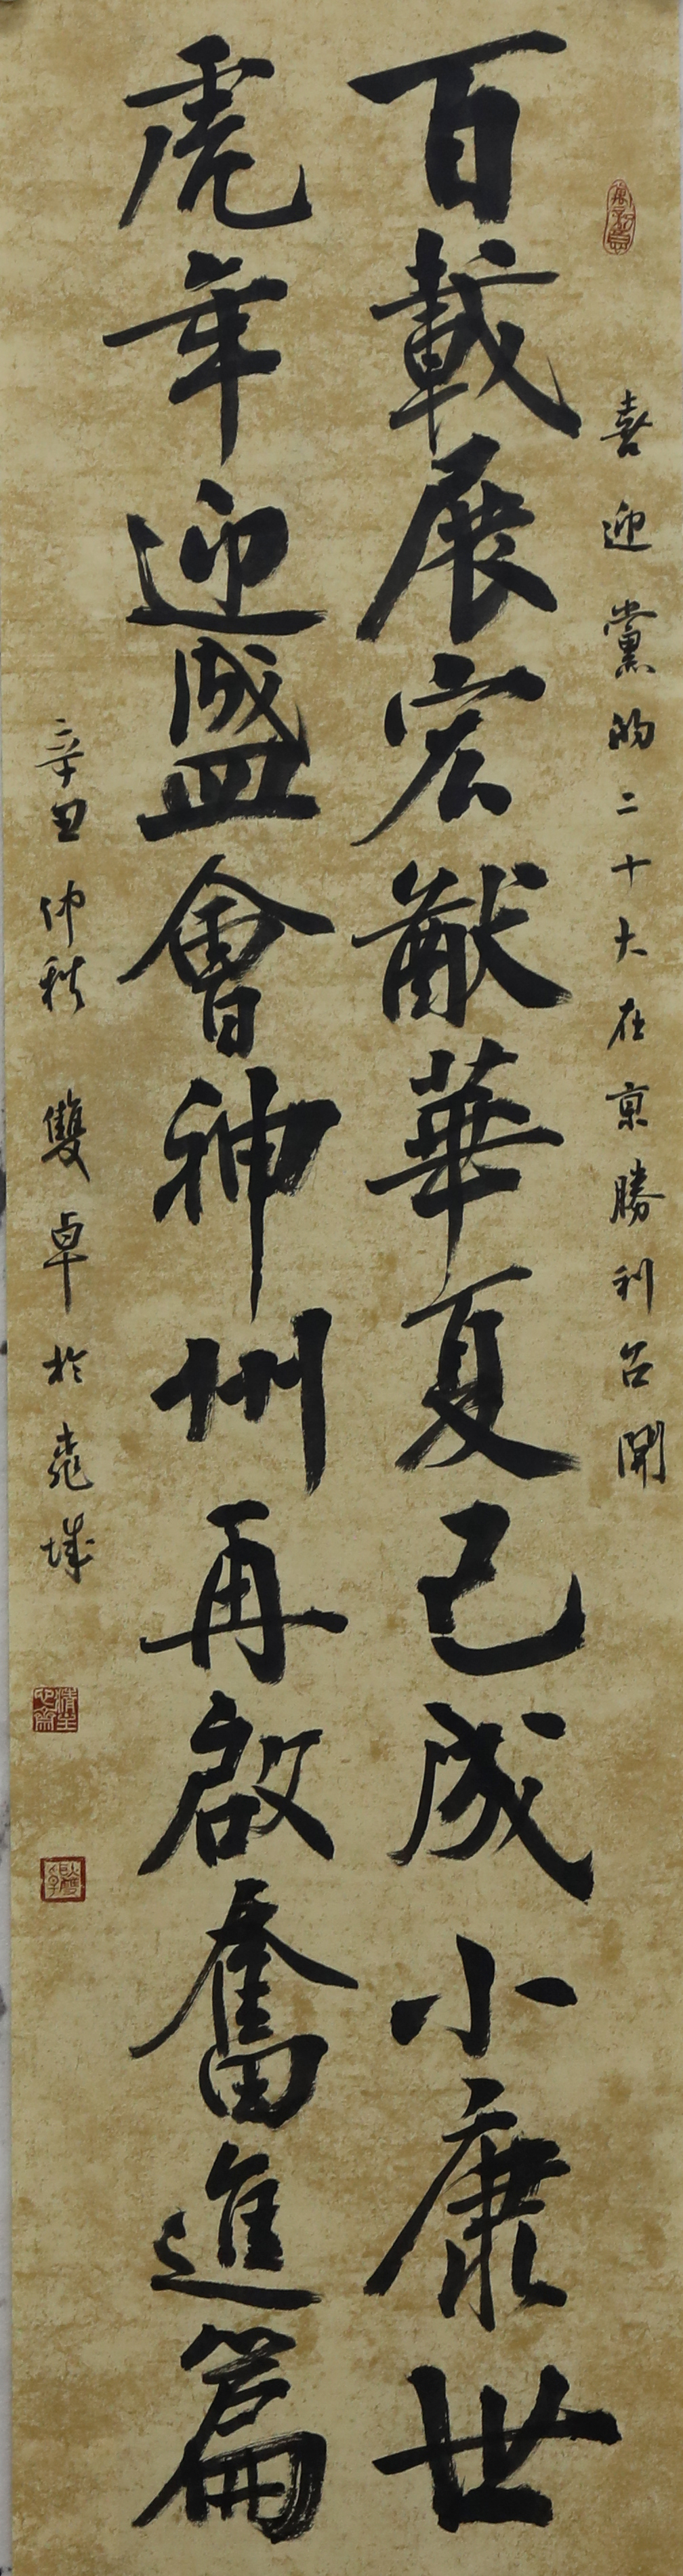 喜迎黨的二十大在京勝利召開
百載展宏猷華夏已成小康世
虎年迎盛會神州再啟奮進篇
辛丑仲秋 雙卓於龍城